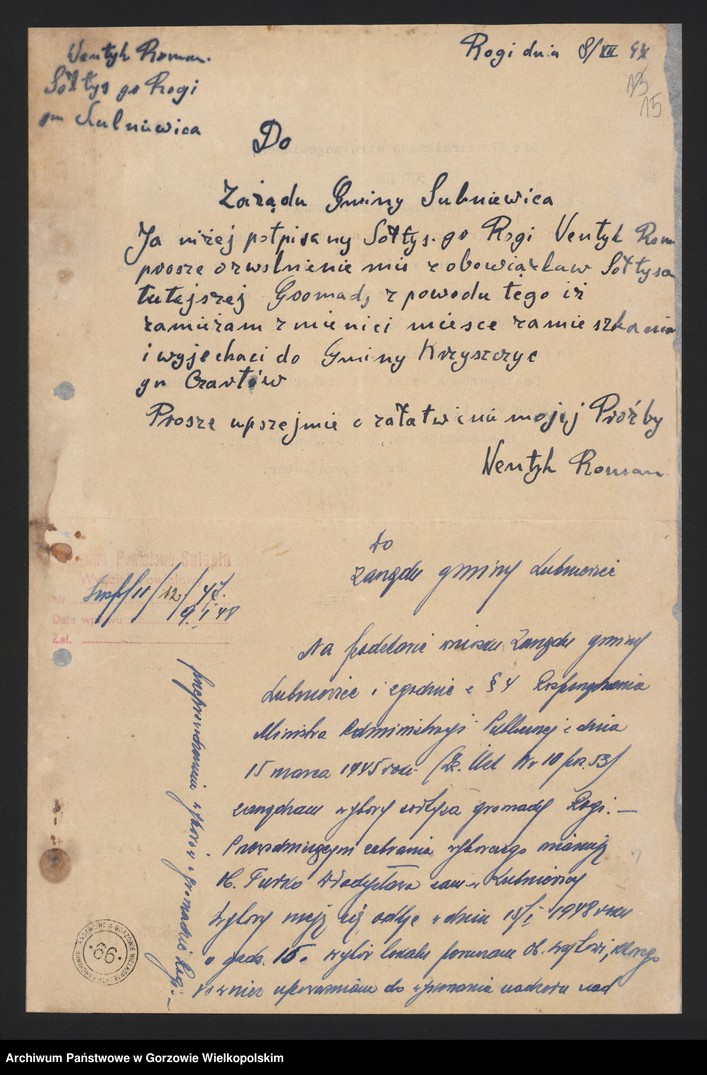 Wentyk Roman.
Sołtys gr Rogi
gm Lubniewica
Rogi dnia 8/XII 47
15
15
Do
Zarządu Gminy Lubniewica
Ja niżej potpisany Sołtys. gr Rogi Wentyk Rom
prosze ozwolnienie mie z obowiązkuw Sołtysa
tutejszej Gromady z powodu tego iż
zamiezam zmienici miejsce zamieszkania
i wyjechaci do Gminy Krzyszczyc
gr Czartów
Prosze uprzejmie o załatwienie mojej Proźby
Wentyk Roman
Do
Zarządu gminy Lubniewice
11/12/47.
9/I 48
Data wpływu
Zał.
Na podstawie wniosku Zarządu gminy
Lubniewice i zgodnie z § 4 Rozporządzenia
Ministra Administracji Publicznej z dnia
15 marca 1945 roku (Dz. Ust Nr 10 poz. 53)
zarządzam wybory sołtysa gromady Rogi. —
Przewodniczącym zebrania wyborczego mianuję
ob. Turko Władysława zam. w Lubniewicach
Wybory mają się odbyć w dniu 15/I 1948 roku
o godz. 15. wybór lokalu poruczam ob. wójtowi, którego
również upoważniam do wykonania nadzoru nad
przeprowadzeniem wyborów w gromadzie Rogi. —
66
Archiwum Państwowe w Gorzowie Wielkopolskim